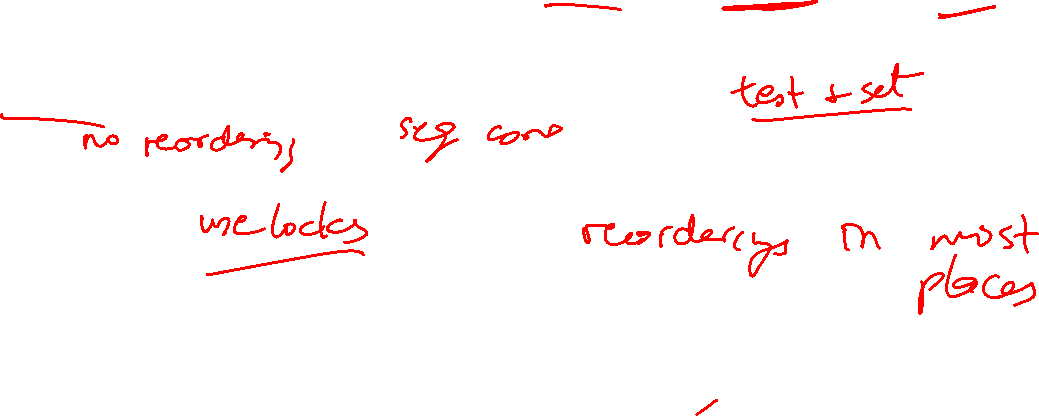 test + set
no reordering seq cons
use locks
reorderings in most
places